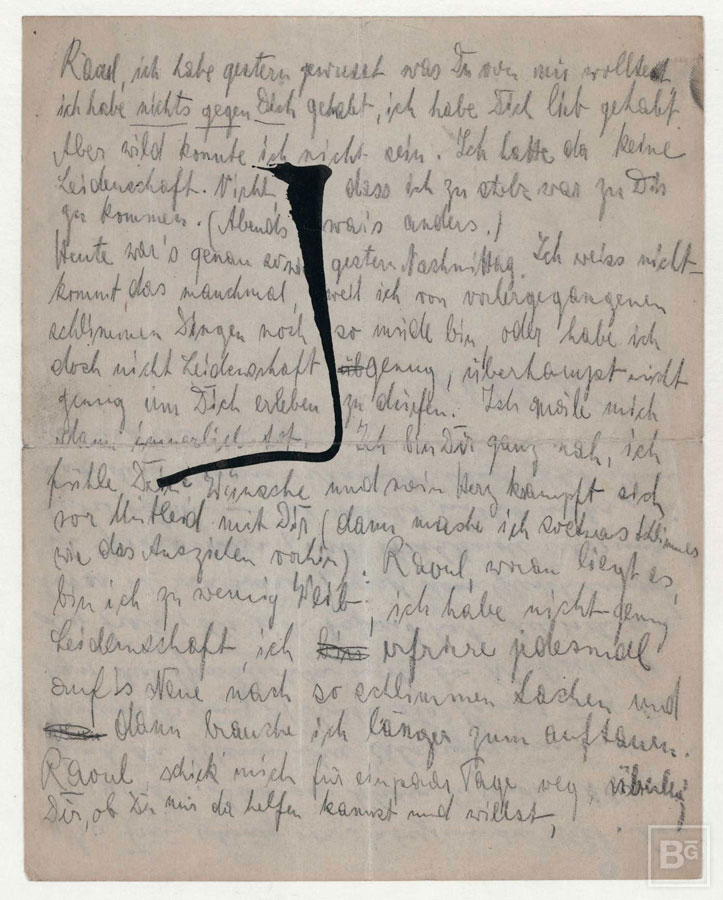 Raoul, ich habe gestern gewusst was Du von mir wolltest
ich habe nichts gegen Dich gehabt, ich habe Dich lieb gehabt
Aber wild konnte ich nicht sein. Ich hatte da keine
Leidenschaft. Nicht, dass ich zu stolz war zu Dir
zu kommen. (Abends war's anders.)
Heute war's genau so wie gestern Nachmittag. Ich weiss nicht
kommt das manchmal, weil ich von vorhergegangenen
schlimmen Dingen noch so müde bin, oder habe ich
doch nicht Leidenschaft genug, überhaupt nicht
genug um Dich erleben zu dürfen. Ich quäle mich
innerlich Ich bin Dir ganz nah, ich
fühle Deine Wünsche und mein Herz krampft sich
vor Mitleid mit Dir (dann mache ich so etwas Schlimmes
wie das Ausziehen vorhin). Raoul, woran liegt es,
bin ich zu wenig Weib, ich habe nicht genug
Leidenschaft, ich erfriere jedesmal
auf's Neue nach so schlimmen Sachen und
dann brauche ich länger zum auftauen.
Raoul schick mich für ein paar Tage weg,
Dir, ob Du mir da helfen kannst und willst,
BG